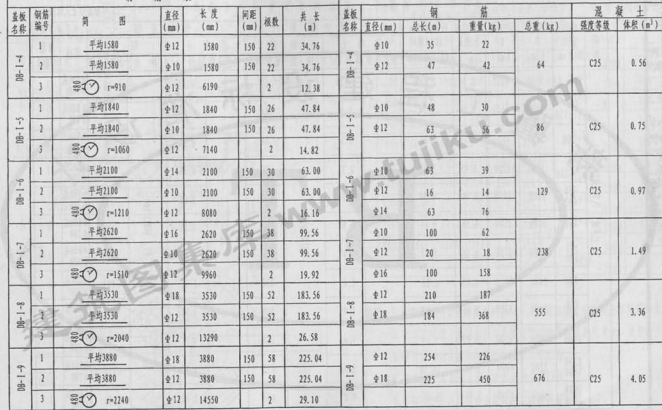 盖板名称 钢筋编号 简 图 直径(mm) 长 度(mm) 间距(mm) 根数 共 长(m)
DB-1-4
1 平均1580 Φ12 1580 150 22 34.76
2 平均1580 Φ10 1580 150 22 34.76
3 480 r=910 Φ12 6190 2 12.38
DB-1-5
1 平均1840 Φ12 1840 150 26 47.84
2 平均1840 Φ10 1840 150 26 47.84
3 480 r=1060 Φ12 7140 2 14.82
DB-1-6
1 平均2100 Φ14 2100 150 30 63.00
2 平均2100 Φ10 2100 150 30 63.00
3 480 r=1210 Φ12 8080 2 16.16
DB-1-7
1 平均2620 Φ16 2620 150 38 99.56
2 平均2620 Φ10 2620 150 38 99.56
3 480 r=1510 Φ12 9960 2 19.92
DB-1-8
1 平均3530 Φ18 3530 150 52 183.56
2 平均3530 Φ12 3530 150 52 183.56
3 480 r=2040 Φ12 13290 2 26.58
DB-1-9
1 平均3880 Φ18 3880 150 58 225.04
2 平均3880 Φ12 3880 150 58 225.04
3 480 r=2240 Φ12 14550 2 29.10
盖板名称 钢 筋 混 凝 土
直径(mm) 总长(m) 重量(kg) 总重(kg) 强度等级 体积(m³)
DB-1-4
Φ10 35 22
Φ12 47 42
64 C25 0.56
DB-1-5
Φ10 48 30
Φ12 63 56
86 C25 0.75
DB-1-6
Φ10 63 39
Φ12 16 14
Φ14 63 76
129 C25 0.97
DB-1-7
Φ10 100 62
Φ12 20 18
Φ16 100 158
238 C25 1.49
DB-1-8
Φ12 210 187
Φ18 184 368
555 C25 3.36
DB-1-9
Φ12 254 226
Φ18 225 450
676 C25 4.05
建筑图集库 www.tujiku.com